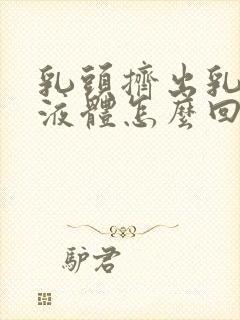 乳頭擠出乳
液體怎麼回
驢君